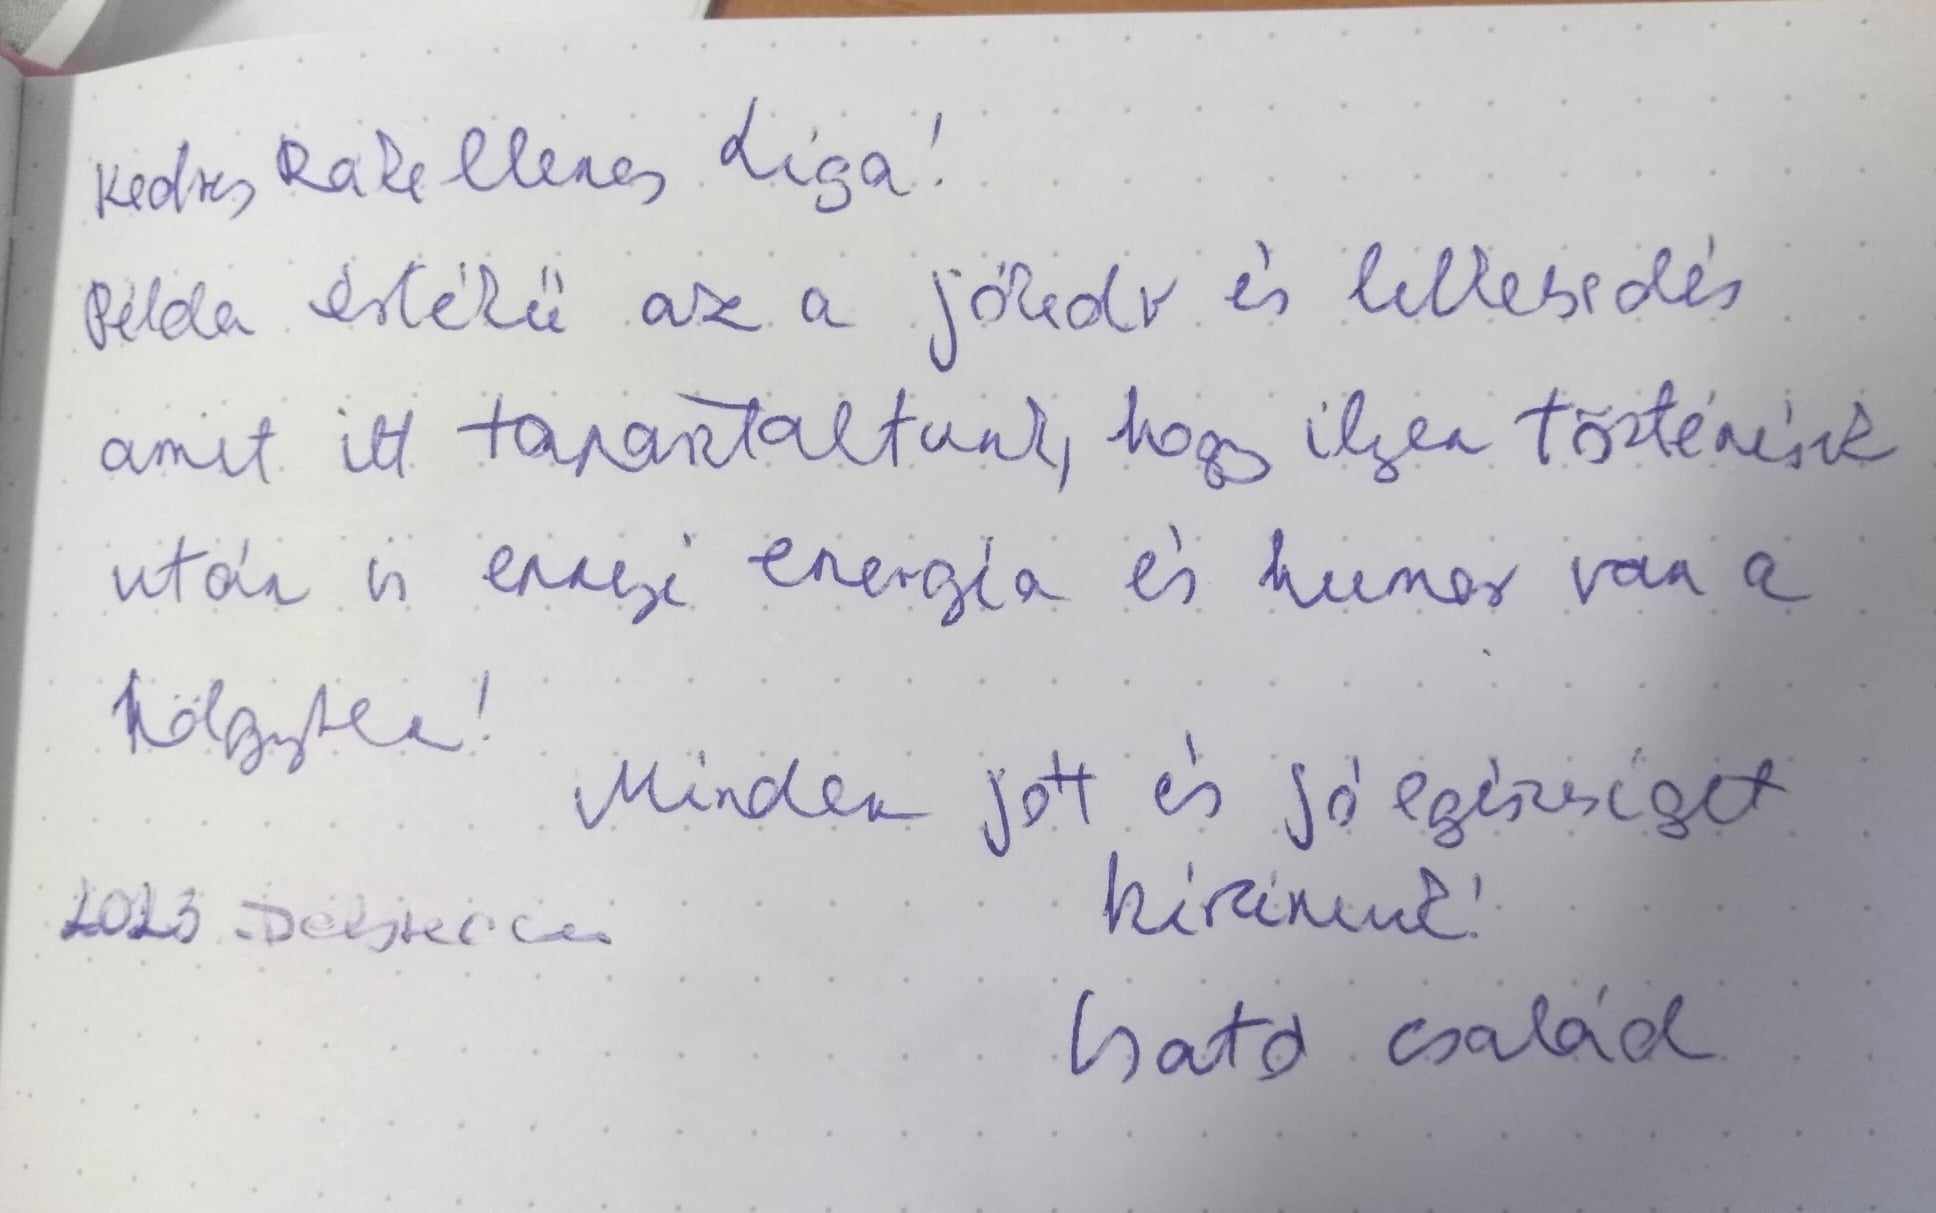 Kedves Rákellenes Liga!
Példa értékű az a jókedv és lelkesedés
amit itt tapasztaltunk, hogy ilyen történések
után is ennyi energia és humor van a
hölgyekben!
Minden jót és jó egészséget
kívánunk!
2023 Debrecen
Csató család